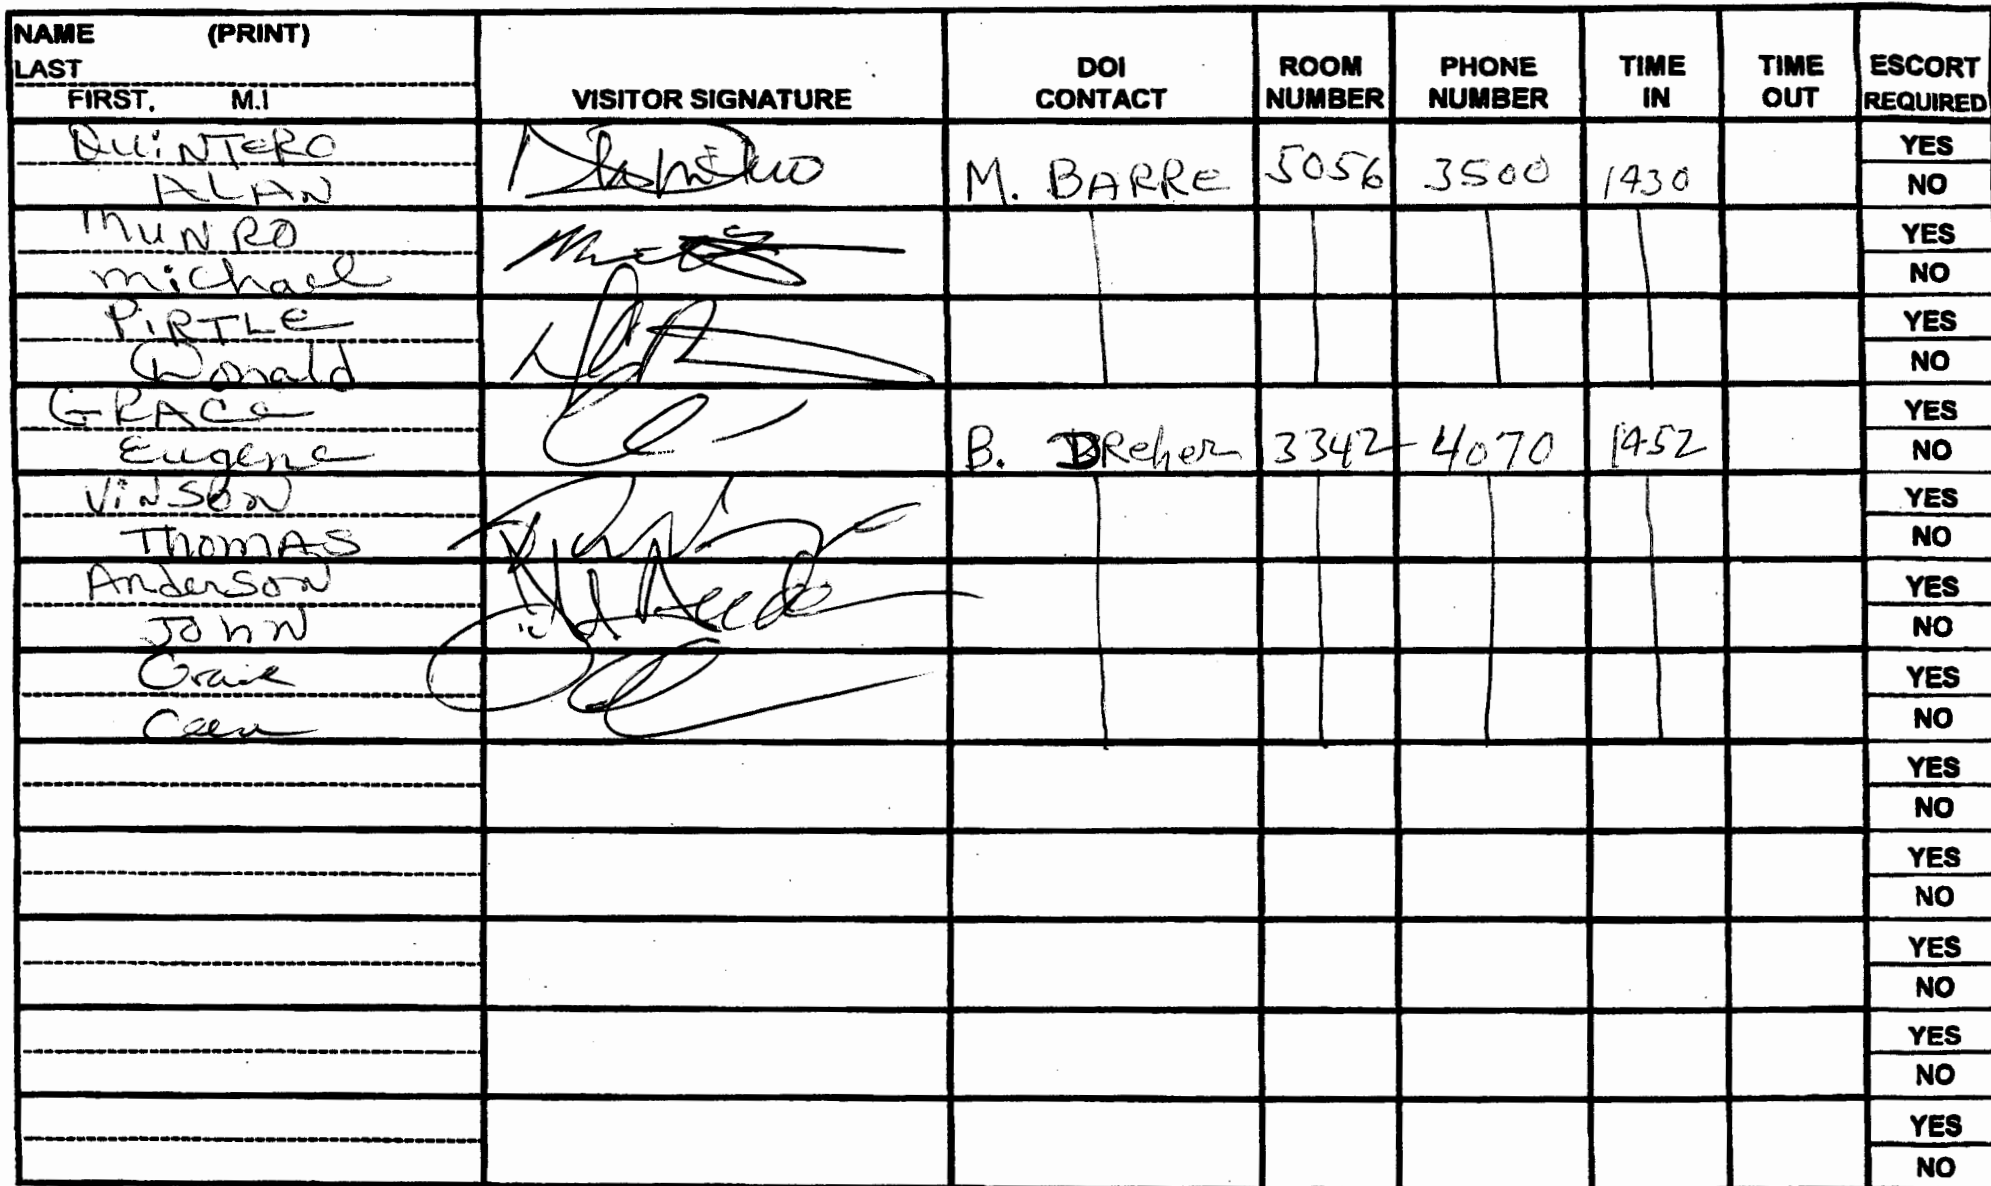 NAME (PRINT)
LAST
FIRST, M.I
VISITOR SIGNATURE
DOI
CONTACT
ROOM
NUMBER
PHONE
NUMBER
TIME
IN
TIME
OUT
ESCORT
REQUIRED
QUINTERO
ALAN
M. BARRE 5056 3500 1430
YES
NO
MUNRO
Michael
YES
NO
PIRTLE
Donald
YES
NO
GRACE
Eugene
B. DReher 3342 4070 1452
YES
NO
VINSON
THOMAS
YES
NO
Anderson
JOHN
YES
NO
YES
NO
YES
NO
YES
NO
YES
NO
YES
NO
YES
NO